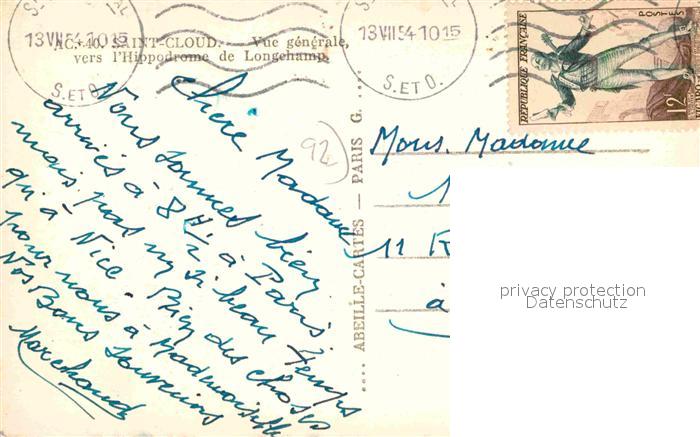 13 VII 54 10 15
S. ET O.
13 VII 54 10 15
S. ET O.
RÉPUBLIQUE FRANÇAISE
POSTES
12
NC. 40. SAINT-CLOUD. Vue générale,
vers l'Hippodrome de Longchamp.
Chère Madame
Nous sommes bien
arrivés à 8 h ½ à Paris.
mais pas un si beau temps
qu'à Nice. Bien des choses
pour nous à Mademoiselle
Nos Bons Souvenirs
Marchand
92
ABEILLE-CARTES — PARIS
Mons. Madame
11 R
à
privacy protection
Datenschutz